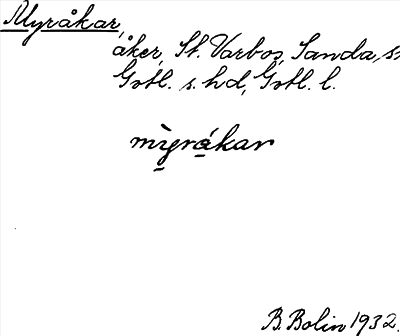 Myråkar,
åker, St. Varbos, Sanda, s:n
Gotl. s. hd, Gotl. l.
mỳrákar
B. Bolin 1932.